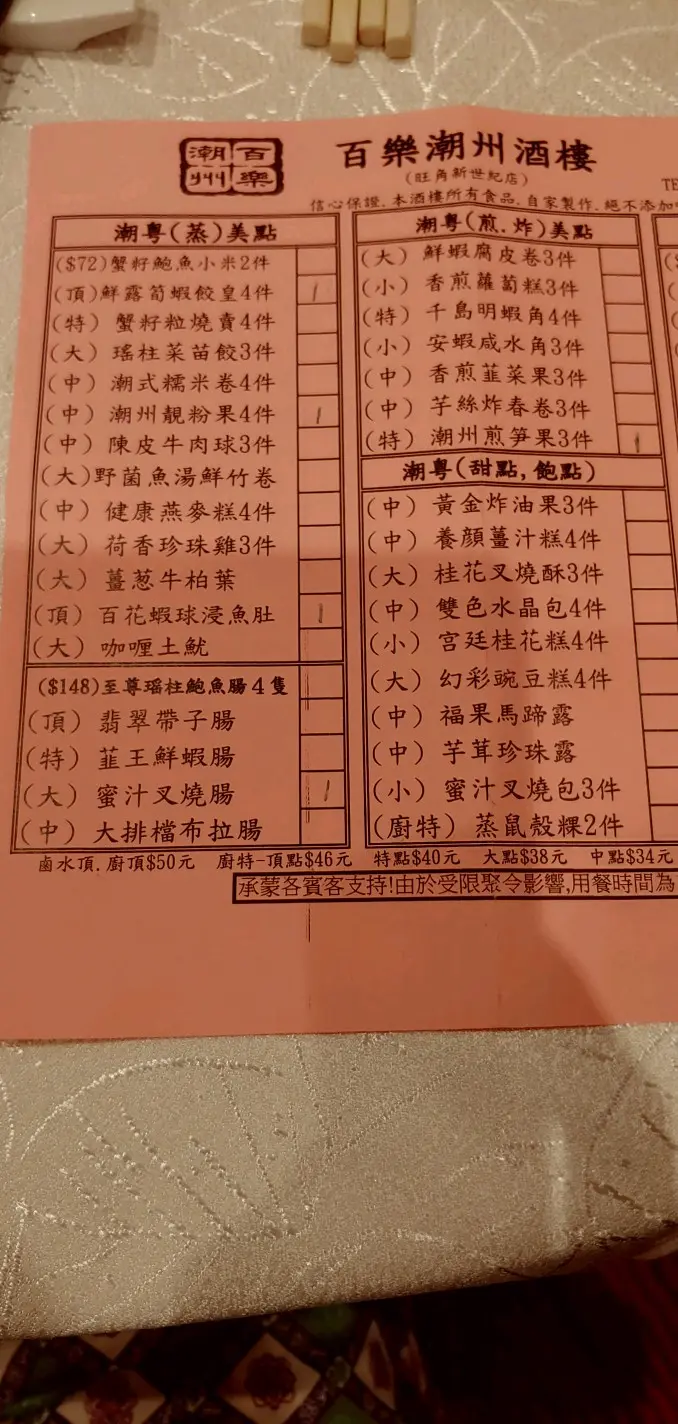 潮州
百樂
百樂潮州酒樓
(旺角新世紀店)
TE
信心保證.本酒樓所有食品.自家製作.絕不添加
潮粵(蒸)美點
($72)蟹籽鮑魚小米2件
(頂)鮮露荀蝦餃皇4件
(特) 蟹籽粒燒賣4件
(大) 瑤柱菜苗餃3件
(中) 潮式糯米卷4件
(中) 潮州靚粉果4件
(中) 陳皮牛肉球3件
(大)野菌魚湯鮮竹卷
(中) 健康燕麥糕4件
(大) 荷香珍珠雞3件
(大) 薑葱牛柏葉
(頂) 百花蝦球浸魚肚
(大) 咖喱土魷
($148)至尊瑤柱鮑魚腸4隻
(頂) 翡翠帶子腸
(特) 韮王鮮蝦腸
(大) 蜜汁叉燒腸
(中) 大排檔布拉腸
潮粵(煎.炸)美點
(大) 鮮蝦腐皮卷3件
(小) 香煎蘿蔔糕3件
(特) 千島明蝦角4件
(小) 安蝦咸水角3件
(中) 香煎韮菜果3件
(中) 芋絲炸春卷3件
(特) 潮州煎笋果3件
潮粵(甜點,飽點)
(中) 黃金炸油果3件
(中) 養顏薑汁糕4件
(大) 桂花叉燒酥3件
(中) 雙色水晶包4件
(小) 宮廷桂花糕4件
(大) 幻彩豌豆糕4件
(中) 福果馬蹄露
(中) 芋茸珍珠露
(小) 蜜汁叉燒包3件
(廚特) 蒸鼠殼粿2件
鹵水頂.廚頂$50元 廚特-頂點$46元 特點$40元 大點$38元 中點$34元
承蒙各賓客支持!由於受限聚令影響,用餐時間為